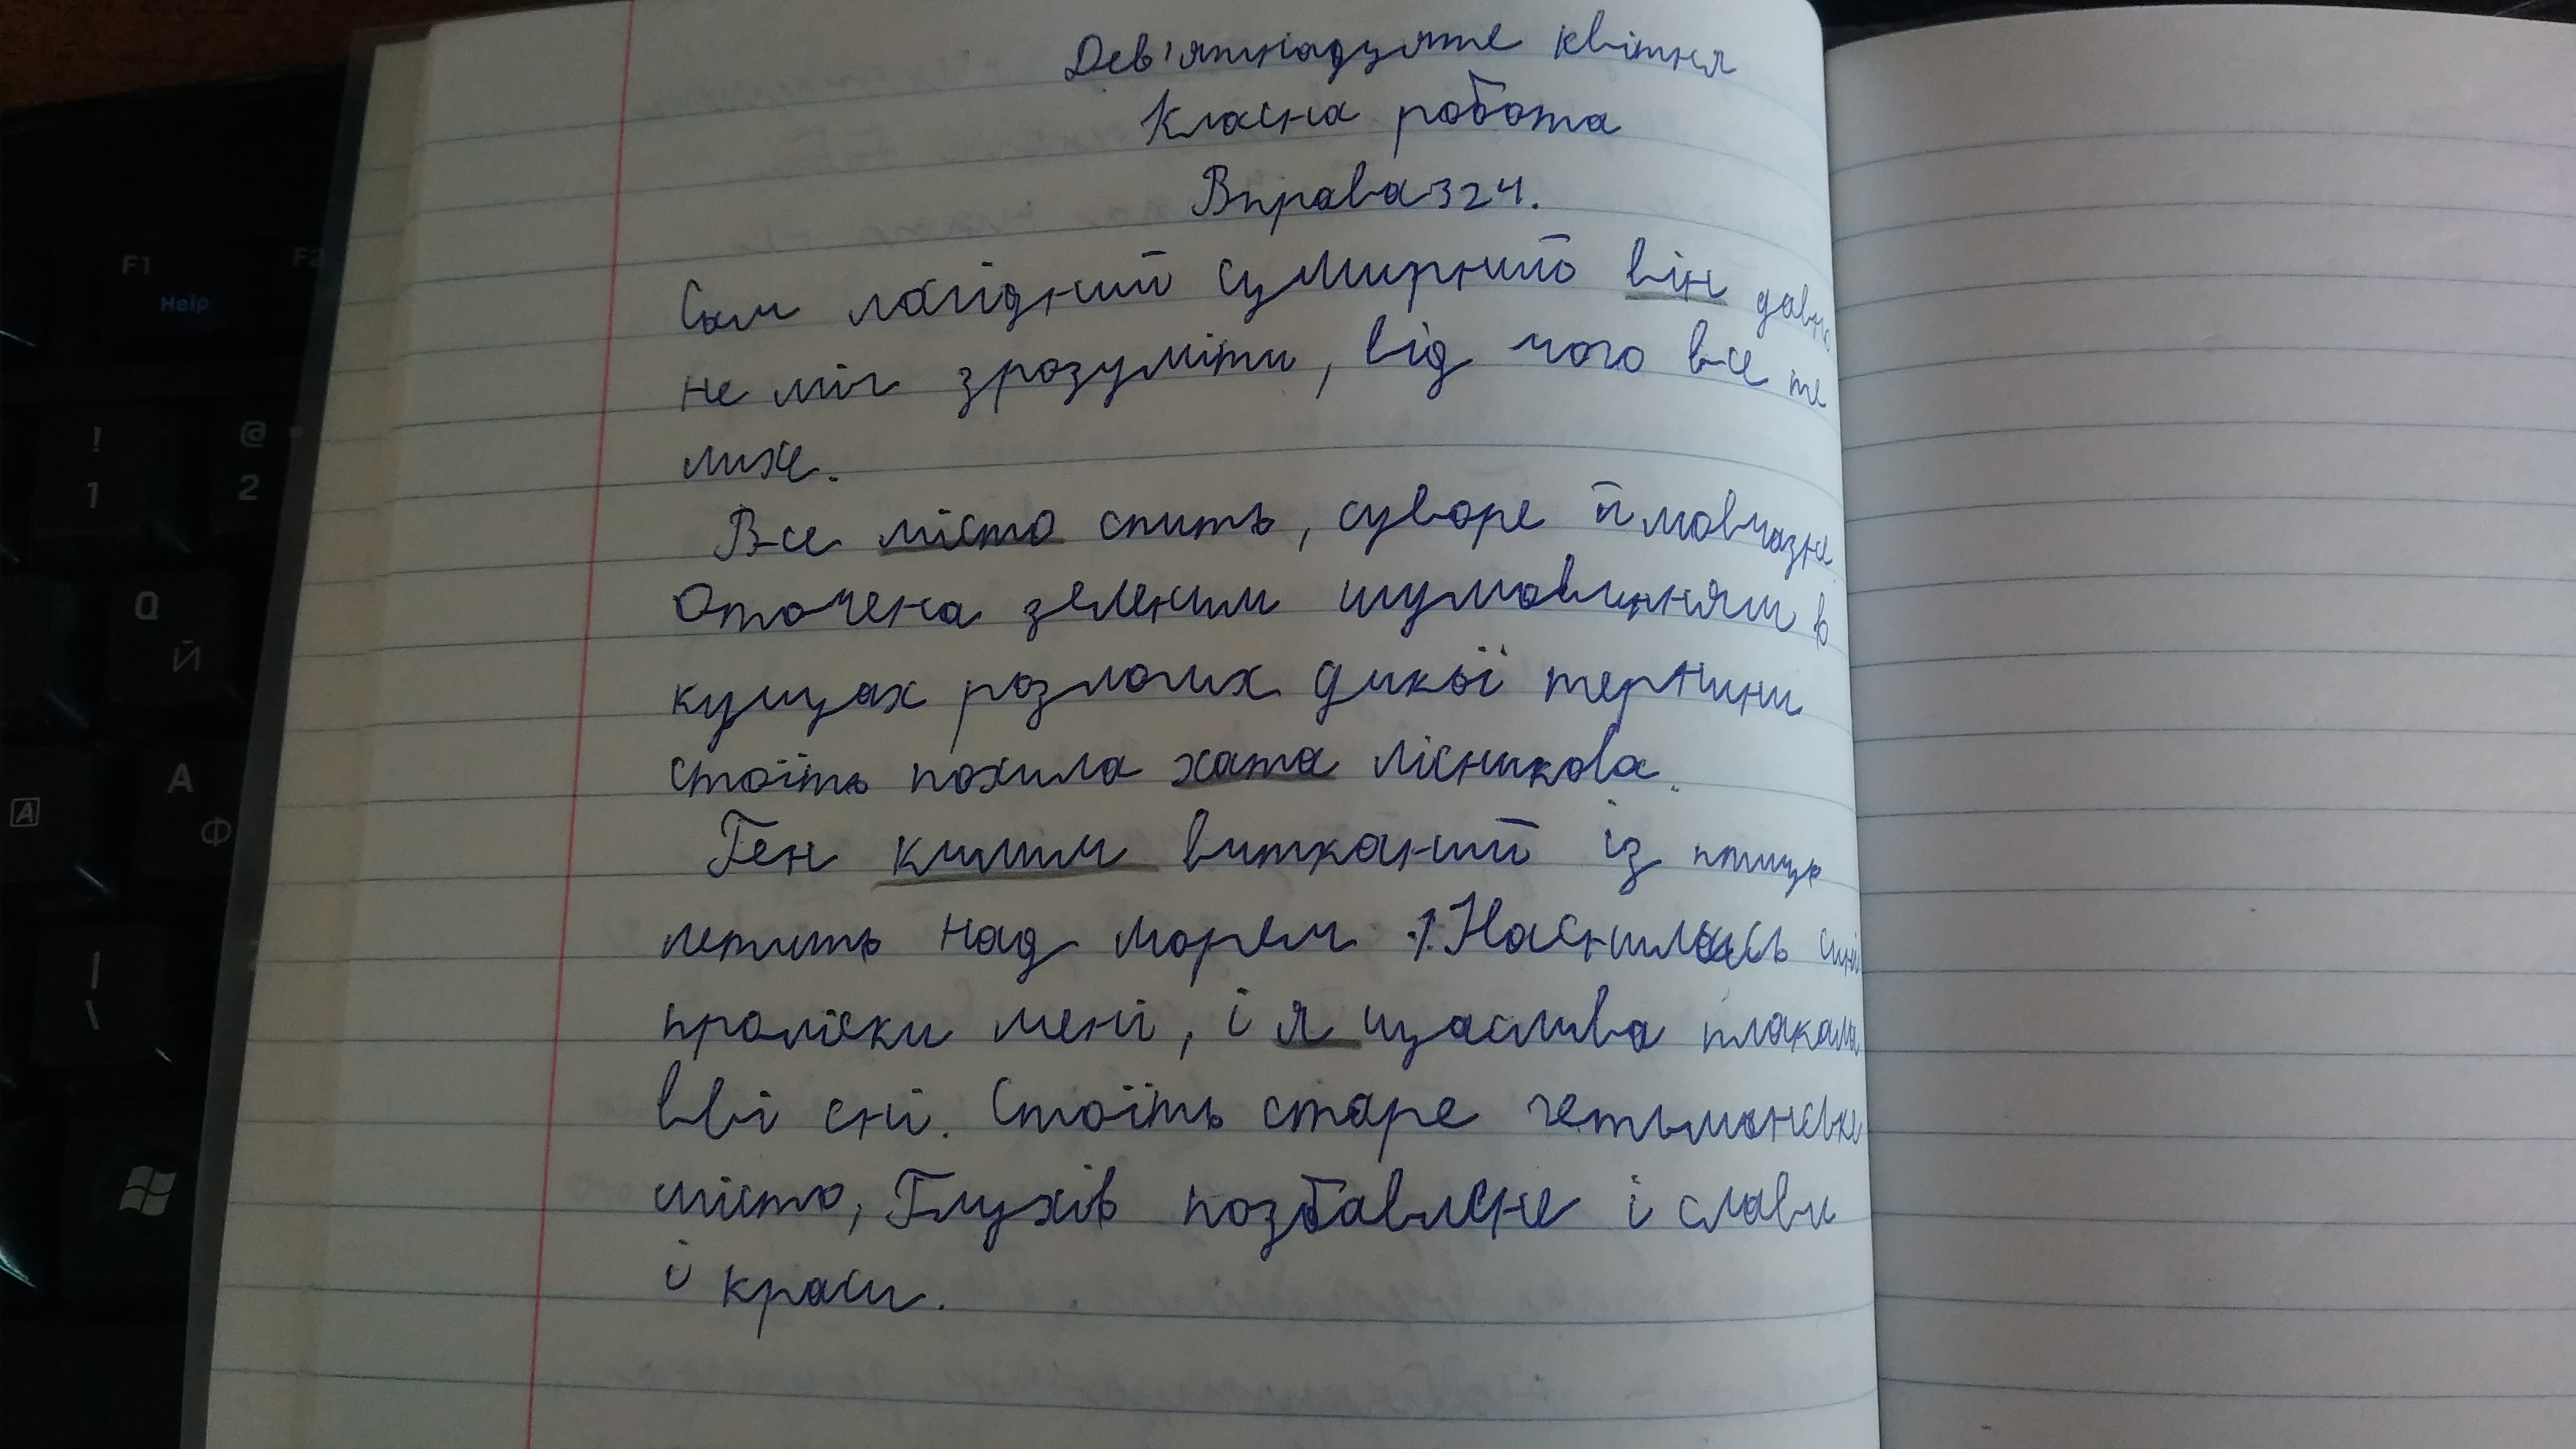 Дев'ятнадцяте квітня
Класна робота
Вправа 324.
Сам лагідний сумирний він давно
не міг зрозуміти, від чого все те
лихе.
Все місто спить, суворе й мовчазне.
Оточена зеленим шумовинням в
кущах розлогих дикої тернини
стоїть похила хата лісникова.
Ген килим витканий із птиць
летить над морем. Наснились сині
проліски мені, і я щаслива плакала
вві сні. Стоїть старе гетьманське
місто, Глухів позбавлене і слави
і краси.
F1
Help
F2
!
1
@
2
Q
Й
A
A
Ф
|
\